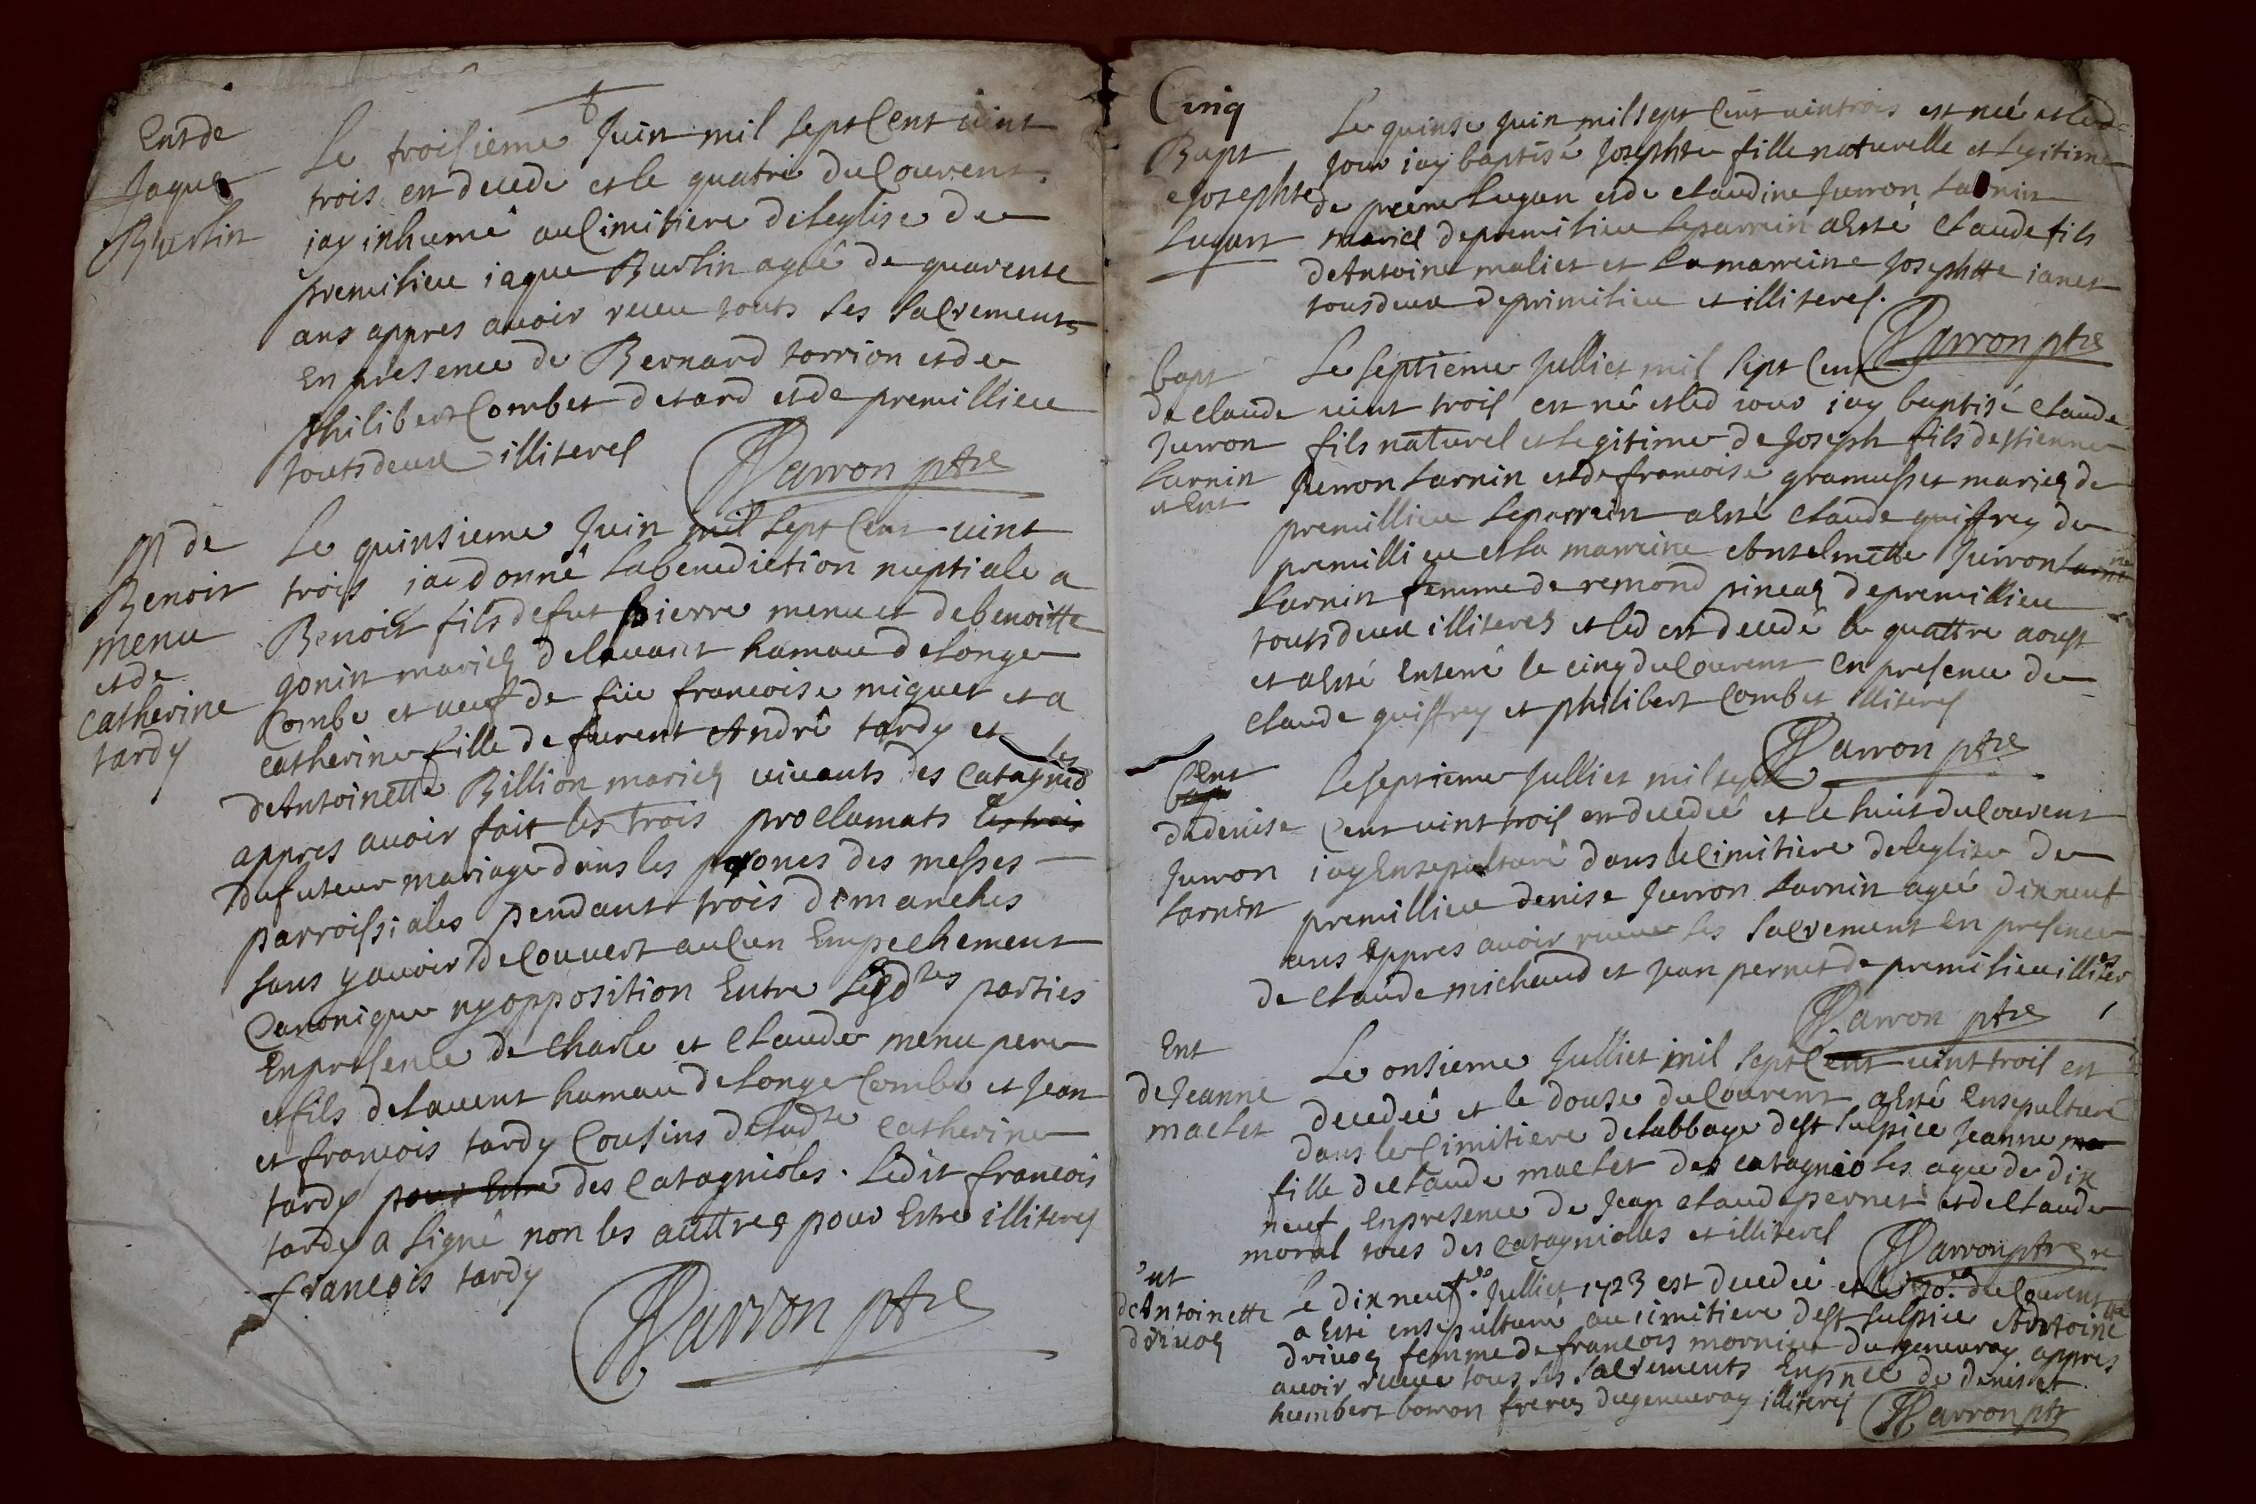 Ent de
Jaque
Burlin
Le troisieme Juin mil sept Cent vint
trois est decede et le quatri du Courent
iay inhumé au Cimitiere de leglise de
premilieu iaque Burlin agée de quarente
ans appres avoir receu touts les Sacrements
En presence de Bernard torrion et de
philibert Combet detard et de premillieu
touts deux illiterés
Parron ptre
M de
Benoit
menu
et de
Catherine
tardy
Le quinsieme Juin mil sept Cent vint
trois iai donné la benediction nuptiale a
Benoit fils de fut pierre menu et de benoitte
gonin mariés delavant hamau de longe
Combe et veuf de füe francoise miguet et a
Catherine fille de furent André tardy et
de Antoinette Billion mariés vivants des Catagnioles
appres avoir fait les trois proclamats les trois
du futeur mariage dans les prones des messes
parroissiales pendant trois dimanches
sans y avoir decouvert aucun Empechement
Canonique ny opposition Entre lesdtes parties
En presence de charle et Claude menu pere
et fils delavent hamau de longe Combe et Jean
et francois tardy Cousins de ladte Catherine
tardy pour Estre des Catagnioles. Ledit francois
tardy a signé non les auttres pour Estre illiterés
francois tardy
Parron ptre
Cinq
Bapt
e Josephte
Lugant
Le quinse Juin mil sept Cent vintrois est neé et led
Jour iay baptisé Josephte fille naturelle et Legitime
de pierre Lugan et de Claudine Jurron Larnin
mariés de premilieu Le parrein a Esté Claude fils
de Antoine maliet et La marreine Josephtte ianet
tous deux de primilieu et illiterés.
Parron ptre
bapt
de Claude
Jurron
Larnin
et Ent
Le septieme Julliet mil sept Cent
vint trois est né et led iour iay baptisé Claude
fils naturel et legitime de Joseph fils destienne
Jurron Larnin et de francoise gramusset mariés de
premillieu Le parrein a Esté Claude guiffrey de
premillieu et la marreine Anselmette Jurron
Larnin femme de remond pineas de premillieu
touts deux illiterés et led est decedé le quattre aoust
et a Esté Enterré le cinq du Courent En presence de
Claude guiffrey et philibert Combet illiterés
Parron ptre
Ent
bap
de denise
Jurron
Larnin
Le septieme Julliet mil sept
Cent vint trois est decedeé et le huit du Courent
iay Ensepulturé dans le Cimitiere de leglise de
premillieu denise Jurron Larnin ageé dixneuf
ans appres avoir receu les Sacrement En presence
de Claude michaud et Jean pernet de premilieu illiteres
Parron ptre
Ent
de Jeanne
maclet
Le onsieme Julliet mil sept Cent vint trois est
decedeé et le douse du Courent a Esté Ensepulturé
dans le Cimitiere de labbaye de st sulpice Jeanne ma
fille de Claude maclet des catagnioles ageé de dix
neuf En presence de Jean Claude pernet et de Claude
moral tous des Catagniolles et illiterés
Parron ptre
Ent
de Antoinette
drivos
Le dix neuf Julliet 1723 est decedeé et le 20 du Courent
a Esté ensepulturé au cimitiere de st sulpice Antoine
drivos femme de francois mornieu du genevray appres
avoir receu tous les Sacrements En pnce de denis et
humbert borron freres du genevray illiterés
Parron ptr